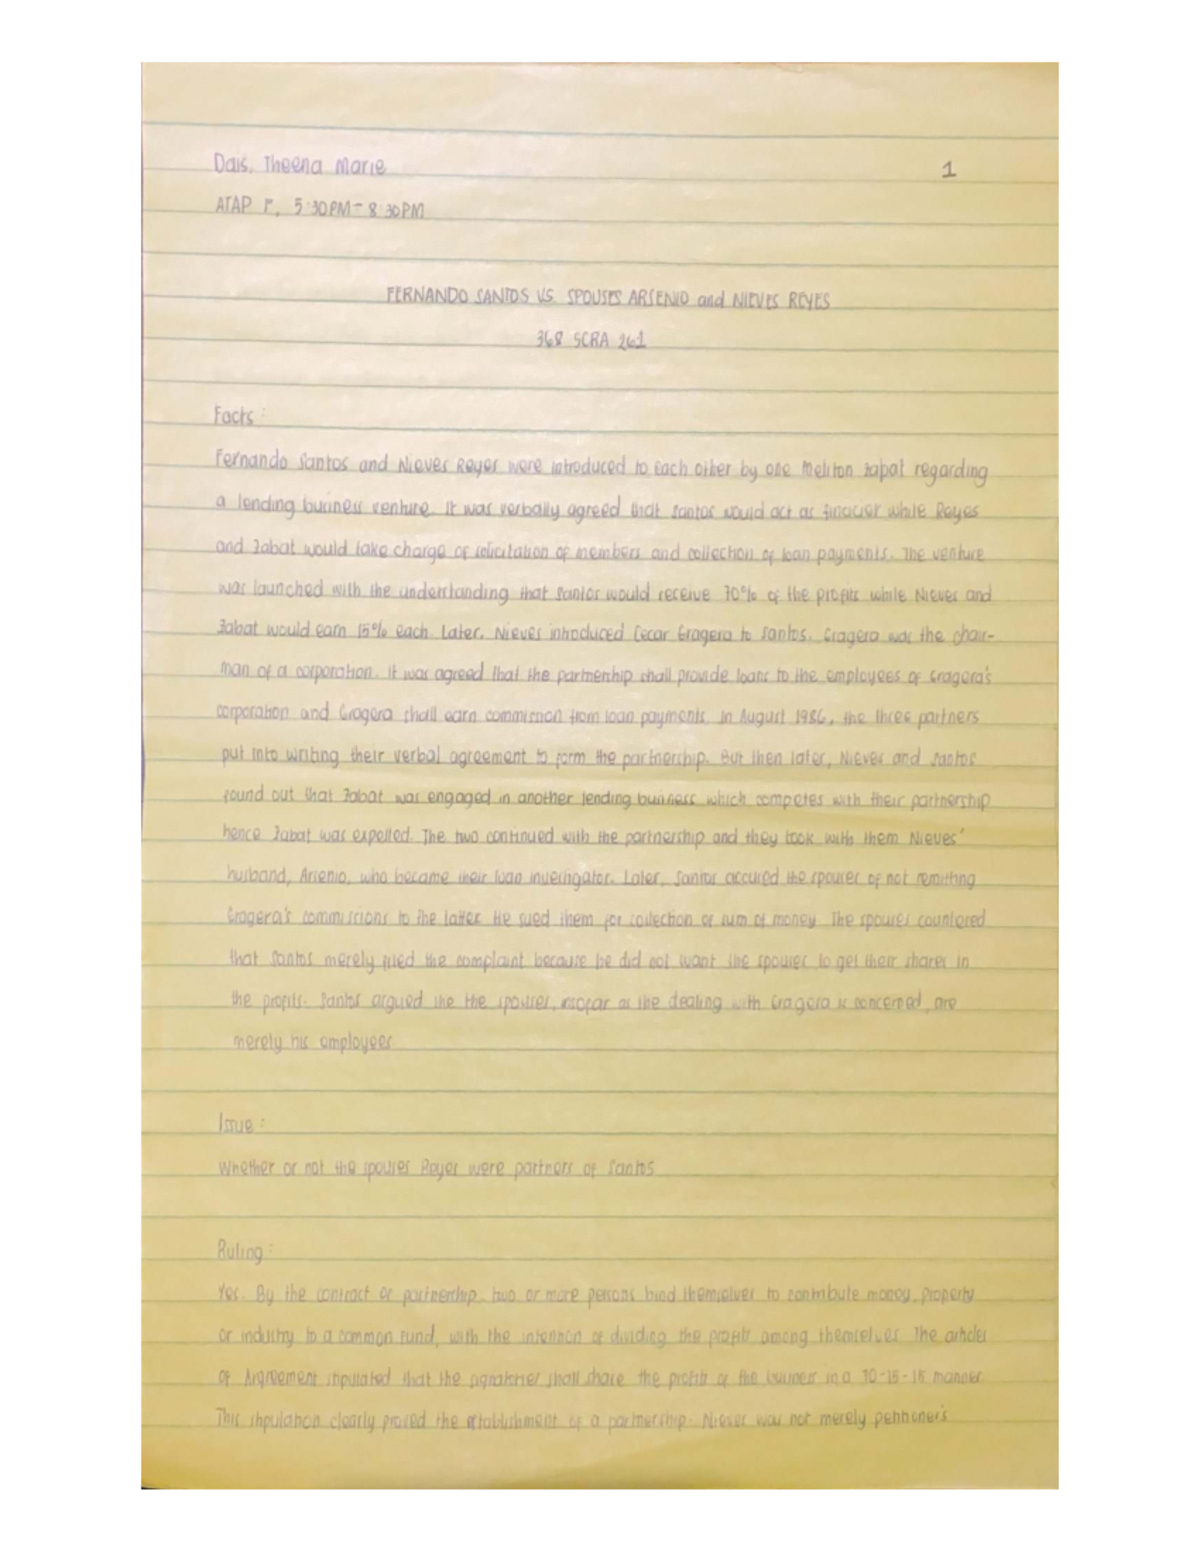 Dais, Theena Marie
1
ATAP F, 5:30PM - 8:30PM
FERNANDO SANTOS VS. SPOUSES ARSENIO and NIEVES REYES
368 SCRA 261
Facts :
Fernando Santos and Nieves Reyes were introduced to each other by one Meliton Zabat regarding
a lending business venture. It was verbally agreed that Santos would act as financer while Reyes
and Zabat would take charge of solicitation of members and collection of loan payments. The venture
was launched with the understanding that Santos would receive 70% of the profits while Nieves and
Zabat would earn 15% each. Later, Nieves introduced Cesar Gragera to Santos. Gragera was the chair-
man of a corporation. It was agreed that the partnership shall provide loans to the employees of Gragera's
corporation and Gragera shall earn commission from loan payments. In August 1986, the three partners
put into writing their verbal agreement to form the partnership. But then later, Nieves and Santos
found out that Zabat was engaged in another lending business which competes with their partnership
hence Zabat was expelled. The two continued with the partnership and they took with them Nieves'
husband, Arsenio, who became their loan investigator. Later, Santos accused the spouses of not remitting
Gragera's commissions to the latter. He sued them for collection of sum of money. The spouses countered
that Santos merely filed the complaint because he did not want the spouses to get their shares in
the profits. Santos argued the the spouses, insofar as the dealing with Gragera is concerned, are
merely his employees
Issue :
Whether or not the spouses Reyes were partners of Santos
Ruling :
Yes. By the contract of partnership, two or more persons bind themselves to contribute money, property
or industry to a common fund, with the intention of dividing the profits among themselves. The articles
of Argreement stipulated that the signatories shall share the profits of the business in a 70-15-15 manner.
This stipulation clearly proved the establishment of a partnership. Nieves was not merely petitioner's